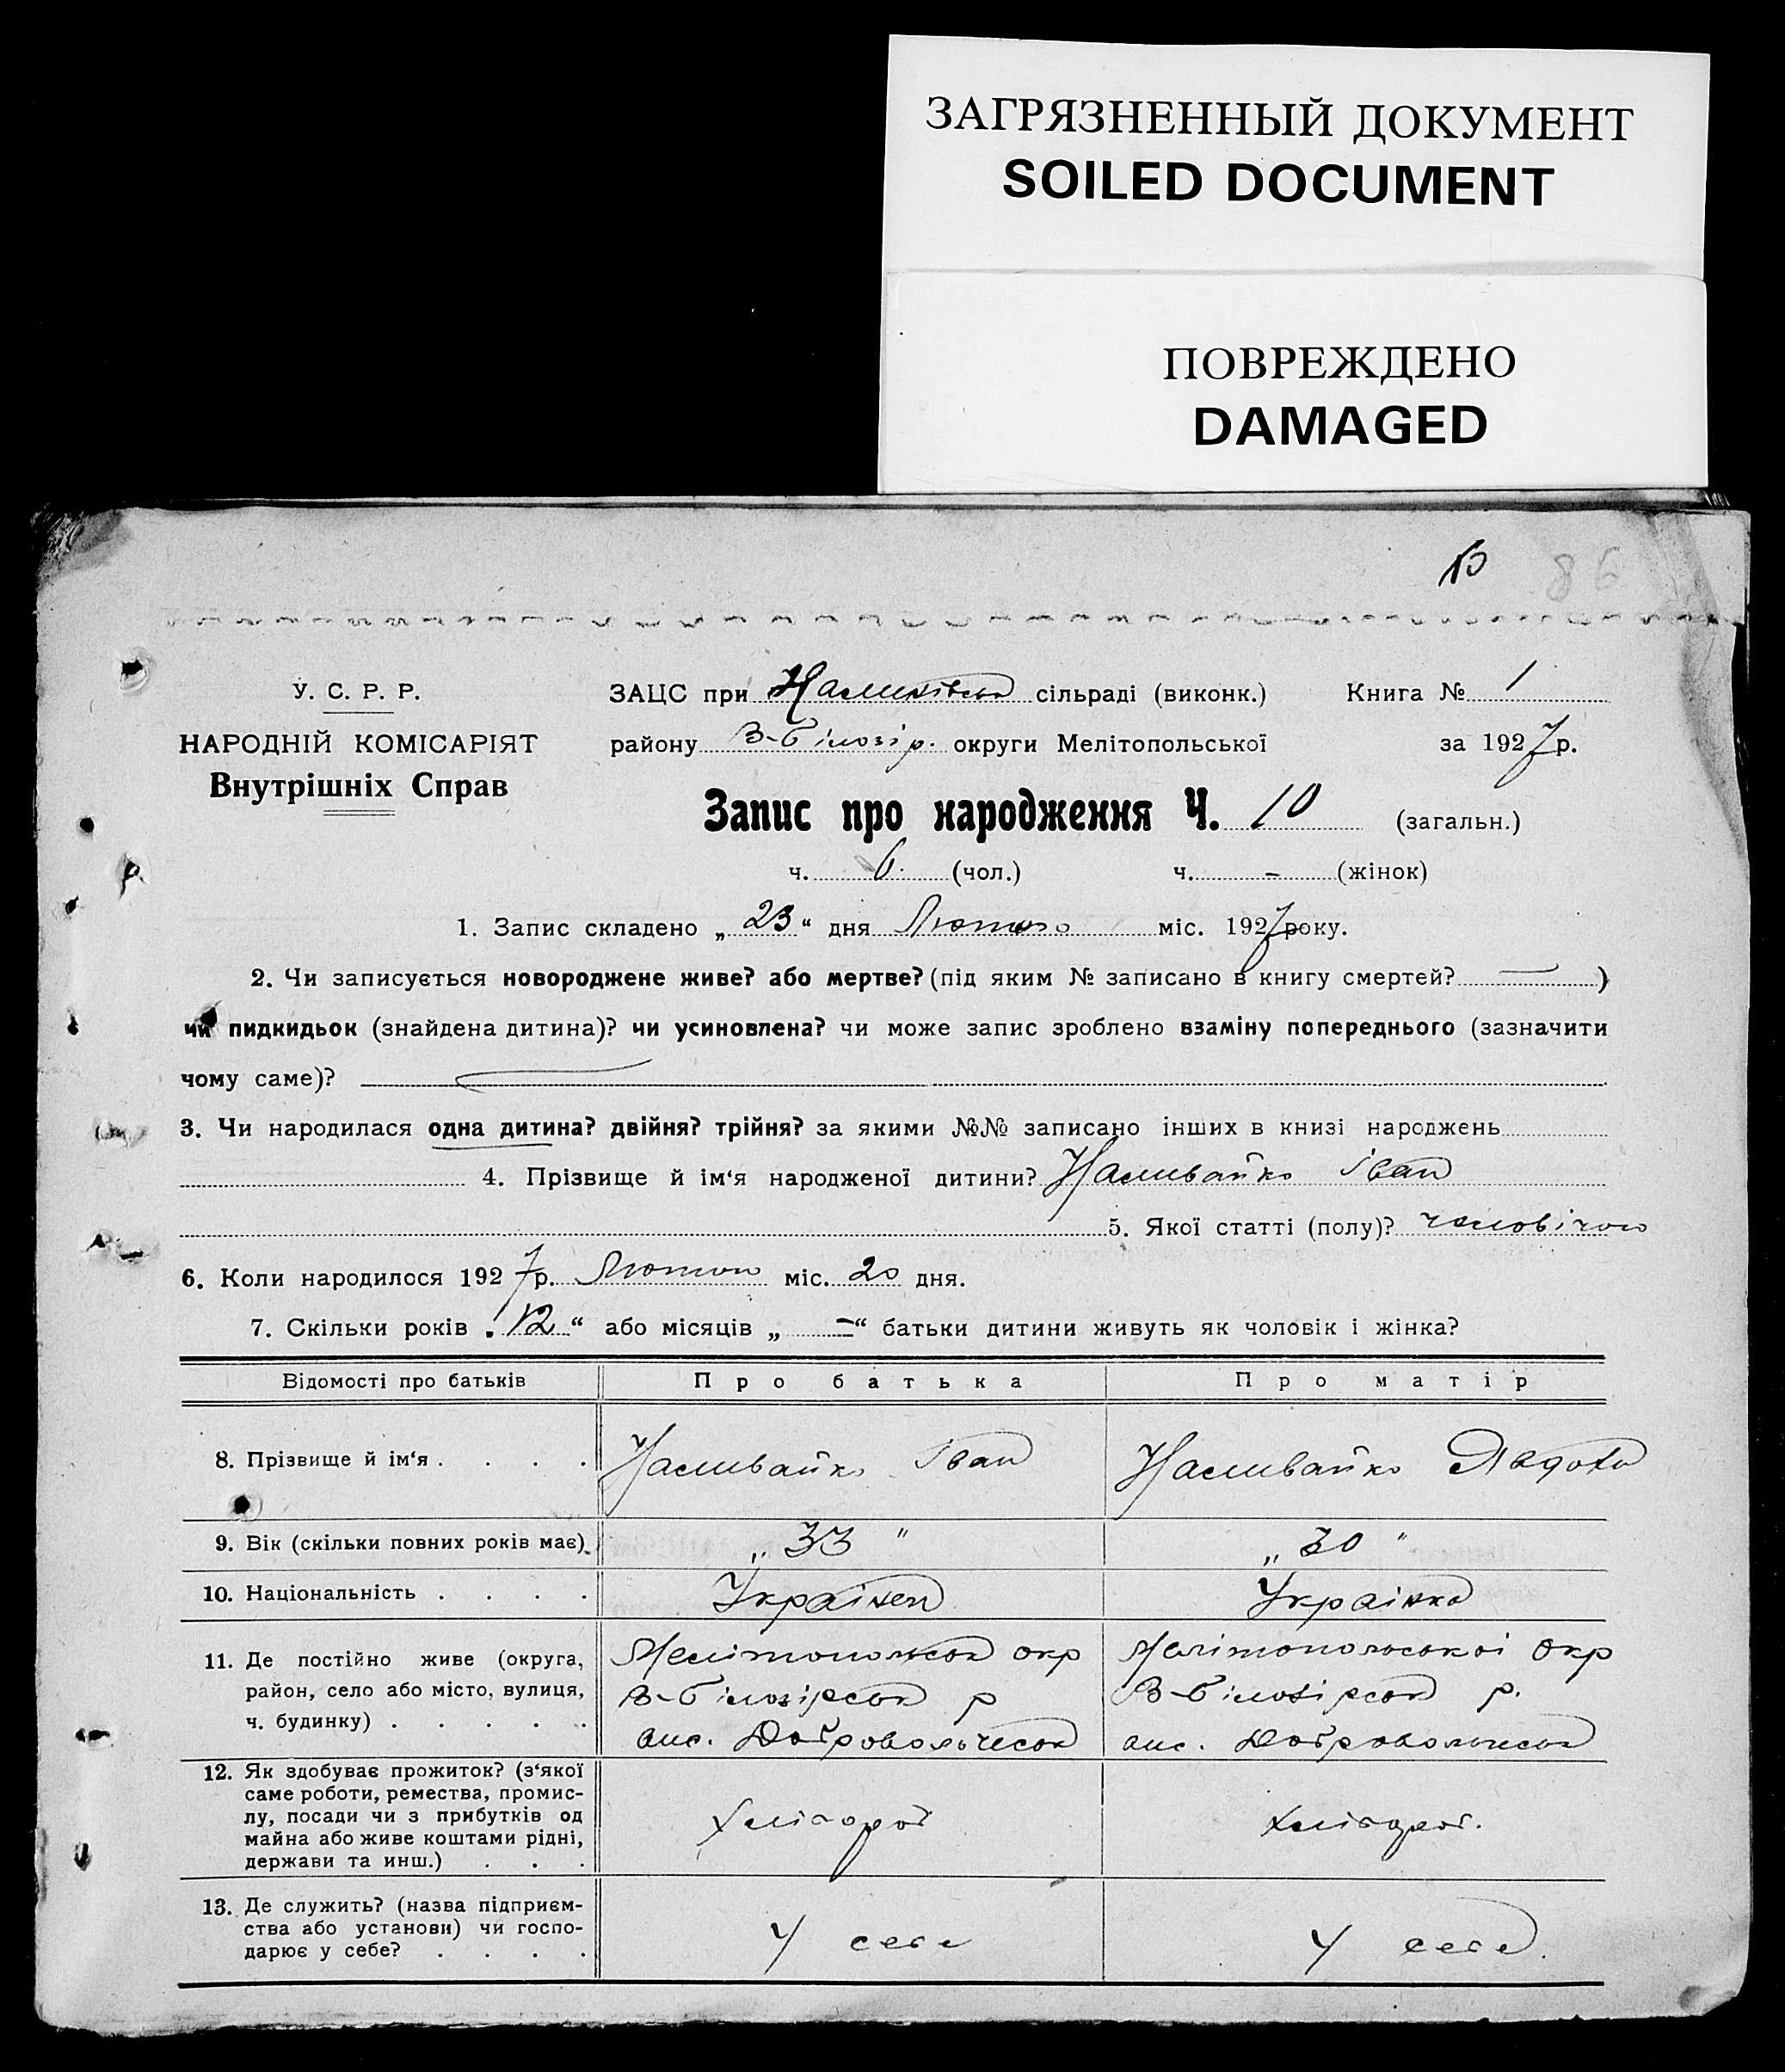 ЗАГРЯЗНЕННЫЙ ДОКУМЕНТ
SOILED DOCUMENT
ПОВРЕЖДЕНО
DAMAGED
86
У. С. Р. Р.
НАРОДНІЙ КОМІСАРІЯТ
Внутрішніх Справ
ЗАЦС при сільраді (виконк.) Книга № 1
району В-Білозір. округи Мелітопольської за 1927 р.
Запис про народження Ч. 10 (загальн.)
ч. 6. (чол.) ч. - (жінок)
1. Запис складено „ 23 “ дня Лютого міс. 1927 року.
2. Чи записується новороджене живе? або мертве? (під яким № записано в книгу смертей? — )
чи пидкидьок (знайдена дитина)? чи усиновлена? чи може запис зроблено взаміну попереднього (зазначити
чому саме)?
3. Чи народилася одна дитина? двійня? трійня? за якими №№ записано інших в книзі народжень
4. Прізвище й ім‘я народженої дитини? Наливайко Іван
5. Якої статті (полу)? чоловічої
6. Коли народилося 1927 р. Лютого міс. 20 дня.
7. Скільки років „ 12 “ або місяців „ — “ батьки дитини живуть як чоловік і жінка?
Відомості про батьків Про батька Про матір
8. Прізвище й ім‘я . . . . Наливайко Іван Наливайко Явдоха
9. Вік (скільки повних років має) „ 33 " „ 30 "
10. Національність . . . . Українец Українка
11. Де постійно живе (округа,
район, село або місто, вулиця,
ч. будинку) . . . . .
Мелітопольськ окр
В-Білозірськ р
вис. Добровольческ
Мелітопольської окр
В-Білозірськ р.
вис. Добровольческ
12. Як здобуває прожиток? (з‘якої
саме роботи, ремества, промис-
лу, посади чи з прибутків од
майна або живе коштами рідні,
держави та инш.) . . .
Хлібороб
Хлібороб.
13. Де служить? (назва підприєм-
ства або установи) чи госпо-
дарює у себе? . . . .
У себе
У себе.